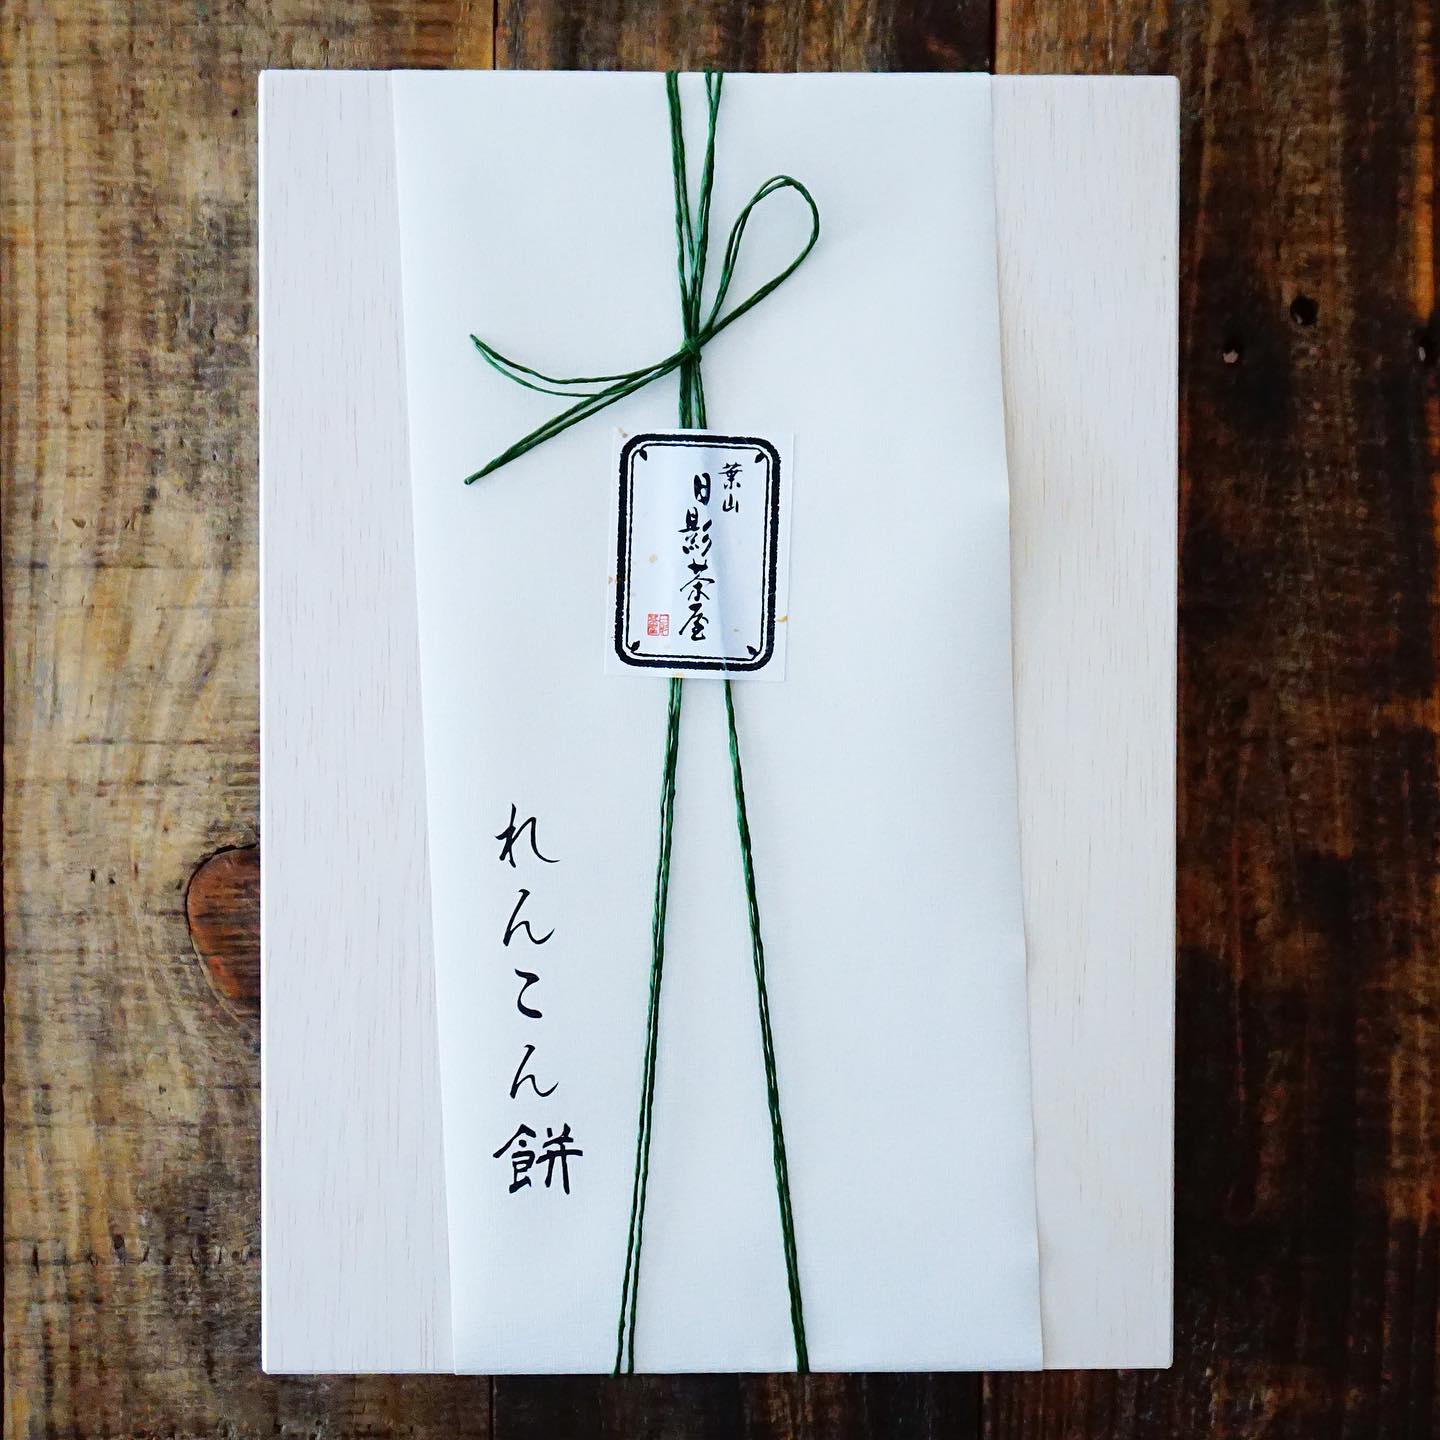 葉山
日影茶屋
れんこん餅